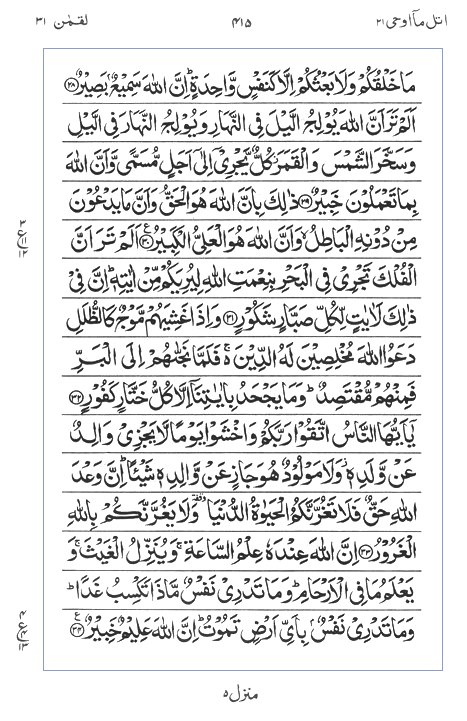 اتل مآ اوحی ۲۱ ۴۱۵ لقمٰن ۳۱
مَا خَلْقُكُمْ وَلَا بَعْثُكُمْ اِلَّا كَنَفْسٍ وَّاحِدَةٍ ؕ اِنَّ اللّٰهَ سَمِيْعٌۢ بَصِيْرٌ ۝۲۸
اَلَمْ تَرَ اَنَّ اللّٰهَ يُوْلِجُ الَّيْلَ فِى النَّهَارِ وَيُوْلِجُ النَّهَارَ فِى الَّيْلِ
وَسَخَّرَ الشَّمْسَ وَالْقَمَرَ ؗ كُلٌّ يَّجْرِىْۤ اِلٰٓى اَجَلٍ مُّسَمًّى وَّاَنَّ اللّٰهَ
بِمَا تَعْمَلُوْنَ خَبِيْرٌ ۝۲۹ ذٰلِكَ بِاَنَّ اللّٰهَ هُوَ الْحَقُّ وَاَنَّ مَا يَدْعُوْنَ
مِنْ دُوْنِهِ الْبَاطِلُ ۙ وَاَنَّ اللّٰهَ هُوَ الْعَلِىُّ الْكَبِيْرُ ۝۳۰ ع اَلَمْ تَرَ اَنَّ
الْفُلْكَ تَجْرِىْ فِى الْبَحْرِ بِنِعْمَتِ اللّٰهِ لِيُرِيَكُمْ مِّنْ اٰيٰتِهٖ ؕ اِنَّ فِىْ
ذٰلِكَ لَاٰيٰتٍ لِّكُلِّ صَبَّارٍ شَكُوْرٍ ۝۳۱ وَاِذَا غَشِيَهُمْ مَّوْجٌ كَالظُّلَلِ
دَعَوُا اللّٰهَ مُخْلِصِيْنَ لَهُ الدِّيْنَ ۚ فَلَمَّا نَجّٰىهُمْ اِلَى الْبَرِّ
فَمِنْهُمْ مُّقْتَصِدٌ ؕ وَمَا يَجْحَدُ بِاٰيٰتِنَاۤ اِلَّا كُلُّ خَتَّارٍ كَفُوْرٍ ۝۳۲
يٰۤاَيُّهَا النَّاسُ اتَّقُوْا رَبَّكُمْ وَاخْشَوْا يَوْمًا لَّا يَجْزِىْ وَالِدٌ
عَنْ وَّلَدِهٖ ؗ وَلَا مَوْلُوْدٌ هُوَ جَازٍ عَنْ وَّالِدِهٖ شَيْـًٔا ؕ اِنَّ وَعْدَ
اللّٰهِ حَقٌّ فَلَا تَغُرَّنَّكُمُ الْحَيٰوةُ الدُّنْيَا ۥ وقفة وَلَا يَغُرَّنَّكُمْ بِاللّٰهِ
الْغَرُوْرُ ۝۳۳ اِنَّ اللّٰهَ عِنْدَهٗ عِلْمُ السَّاعَةِ ۚ وَيُنَزِّلُ الْغَيْثَ ۚ وَ
يَعْلَمُ مَا فِى الْاَرْحَامِ ؕ وَمَا تَدْرِىْ نَفْسٌ مَّاذَا تَكْسِبُ غَدًا ؕ
وَمَا تَدْرِىْ نَفْسٌۢ بِاَىِّ اَرْضٍ تَمُوْتُ ؕ اِنَّ اللّٰهَ عَلِيْمٌ خَبِيْرٌ ۝۳۴ ع
۳ ع ۱۱ ۱۲
۴ ع ۴ ۱۳
منزل ۵